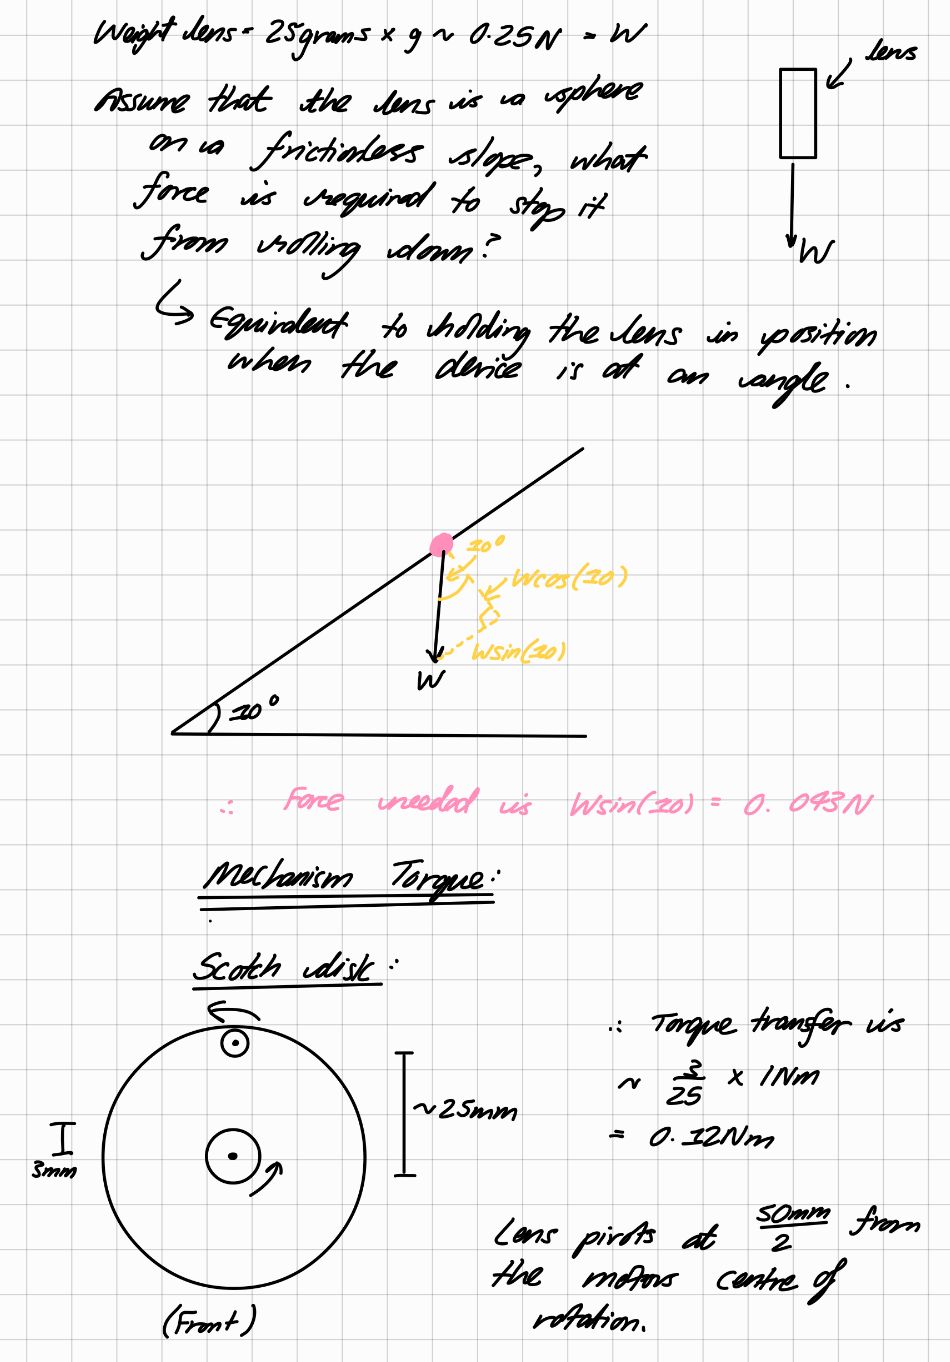 Weight lens = 25grams x g ~ 0.25N = W
lens
Assume that the lens is a sphere
on a frictionless slope, what
force is required to stop it
from rolling down?
W
↳ Equivalent to holding the lens in position
when the device is at an angle.
10°
Wcos(10)
Wsin(10)
W
10°
∴ Force needed is Wsin(10) = 0.043N
Mechanism Torque:
Scotch disk:
∴ Torque transfer is
~ 3/25 x 1Nm
~25mm
= 0.12Nm
3mm
Lens pivots at 50mm/2 from
the motors centre of
rotation.
(Front)